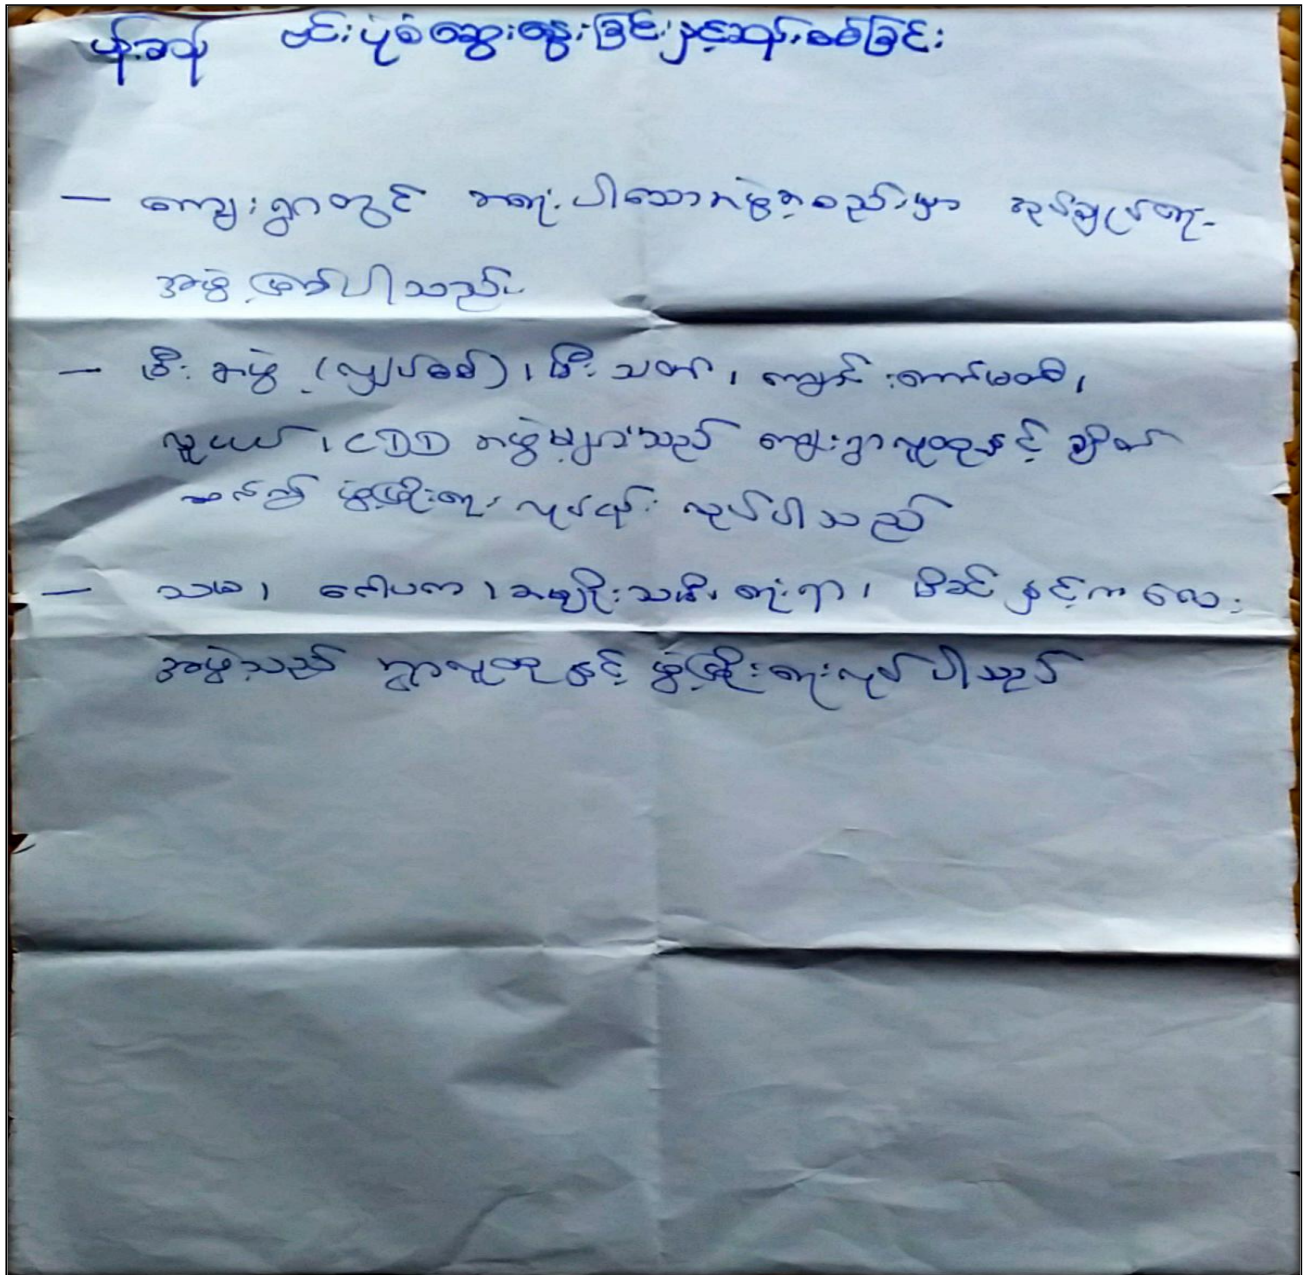 ပန်းခန် ဗင်းပုံစံဆွေးနွေးခြင်းနှင့်ဆန်းစစ်ခြင်း
— ကျေးရွာတွင် အရေးပါသောအဖွဲ့အစည်းမှာ အုပ်ချုပ်ရေး
အဖွဲ့ဖြစ်ပါသည်။
— မီးအဖွဲ့ (လျှပ်စစ်)၊ မီးသတ်၊ ကျောင်းကော်မတီ၊
လူငယ်၊ CDD အဖွဲ့များသည် ကျေးရွာလူထုနှင့် ချိတ်
ဆက်၍ ဖွံ့ဖြိုးရေး လုပ်ငန်း လုပ်ပါသည်
— သမ၊ ဂေါပက၊ အမျိုးသမီးရေးရာ၊ မိခင်နှင့်ကလေး
အဖွဲ့သည် ရွာလူထုနှင့် ဖွံ့ဖြိုးရေးလုပ်ပါသည်